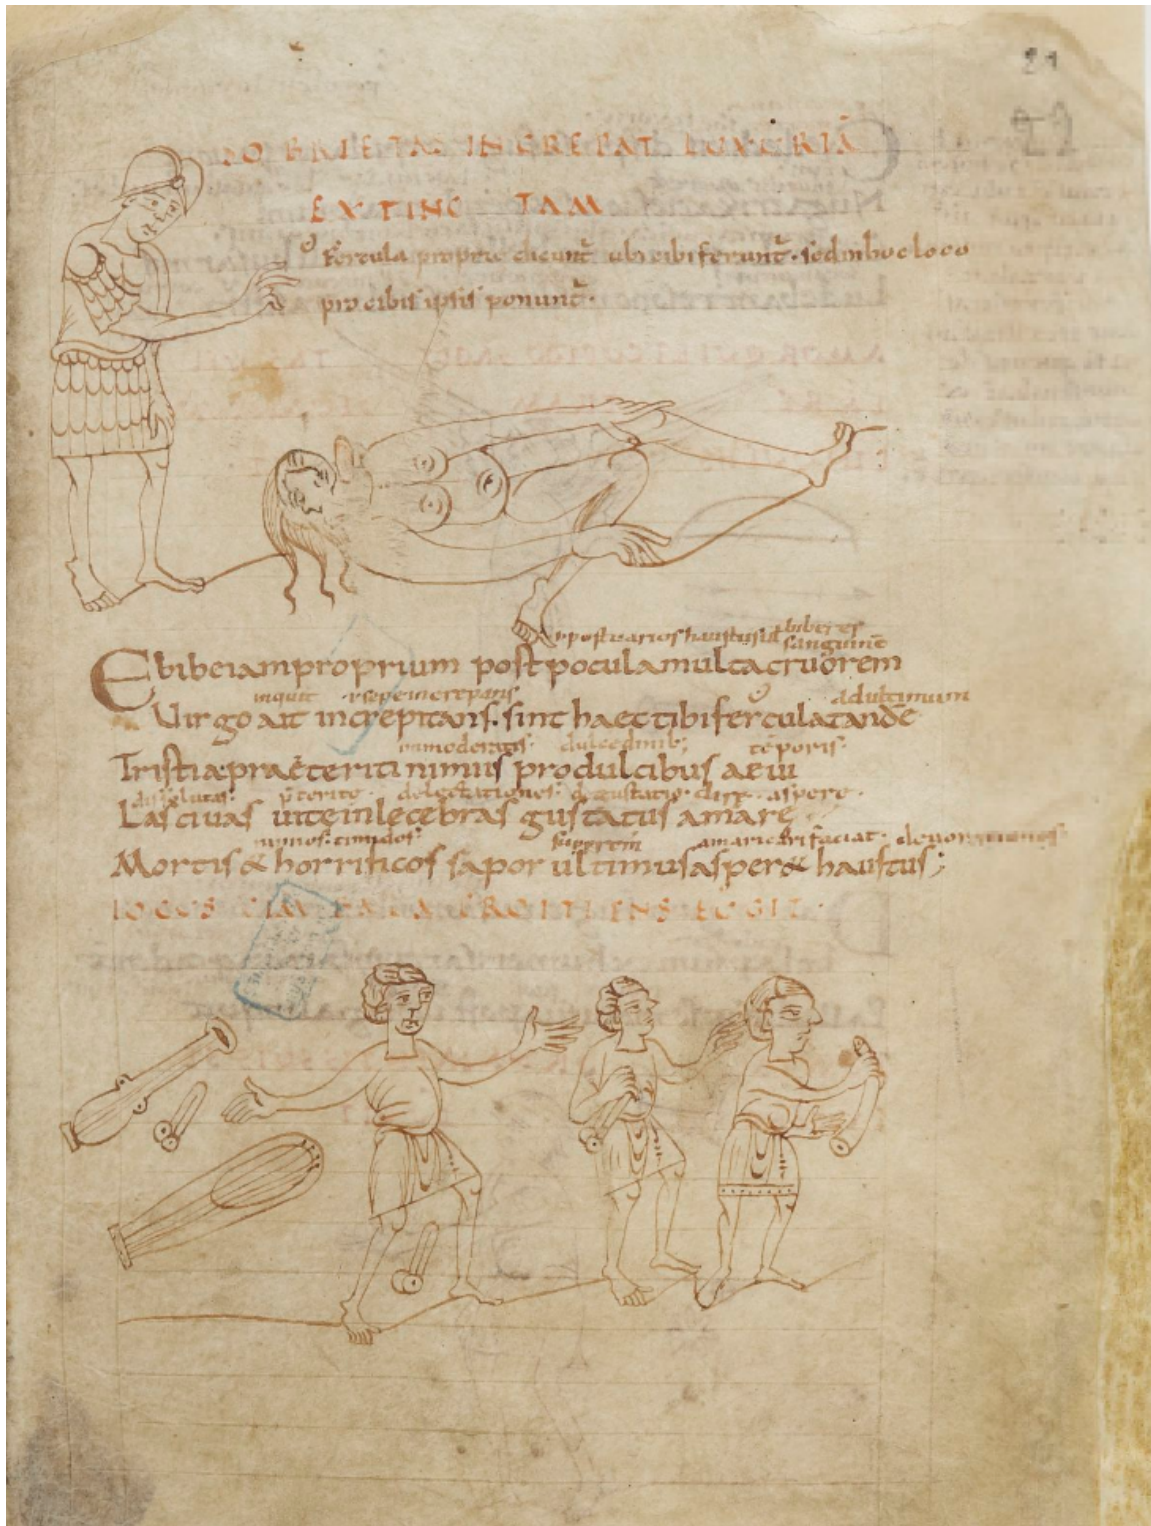 SOBRIETAS INCREPAT LUXURIĀ
EXTINCTAM
Fercula propriae dicunt̄ ubi cibi ferunt̄. sed in hoc loco
pro cibis ipsis ponunt̄.
post varios haustus ut biberes
sanguinē
Ebibe iam proprium post pocula multa cruorem
inquit .i. sepe increpans adultimum
Virgo ait increpitans. sint haec tibi fercula tandē
inmoderatis. dulcedinib; tēporis.
Tristia praeteriti nimius pro dulcibus aevi
dissolutas. p̄terite. delectationes. degustatio. aspere.
Lascivas vite inlecebras gustatus amare
timidos. amaricari faciat.
Mortis & horrificos sapor ultimus asper & haustus;
IOCUS CIMBALA PROITIENS FUGIT.